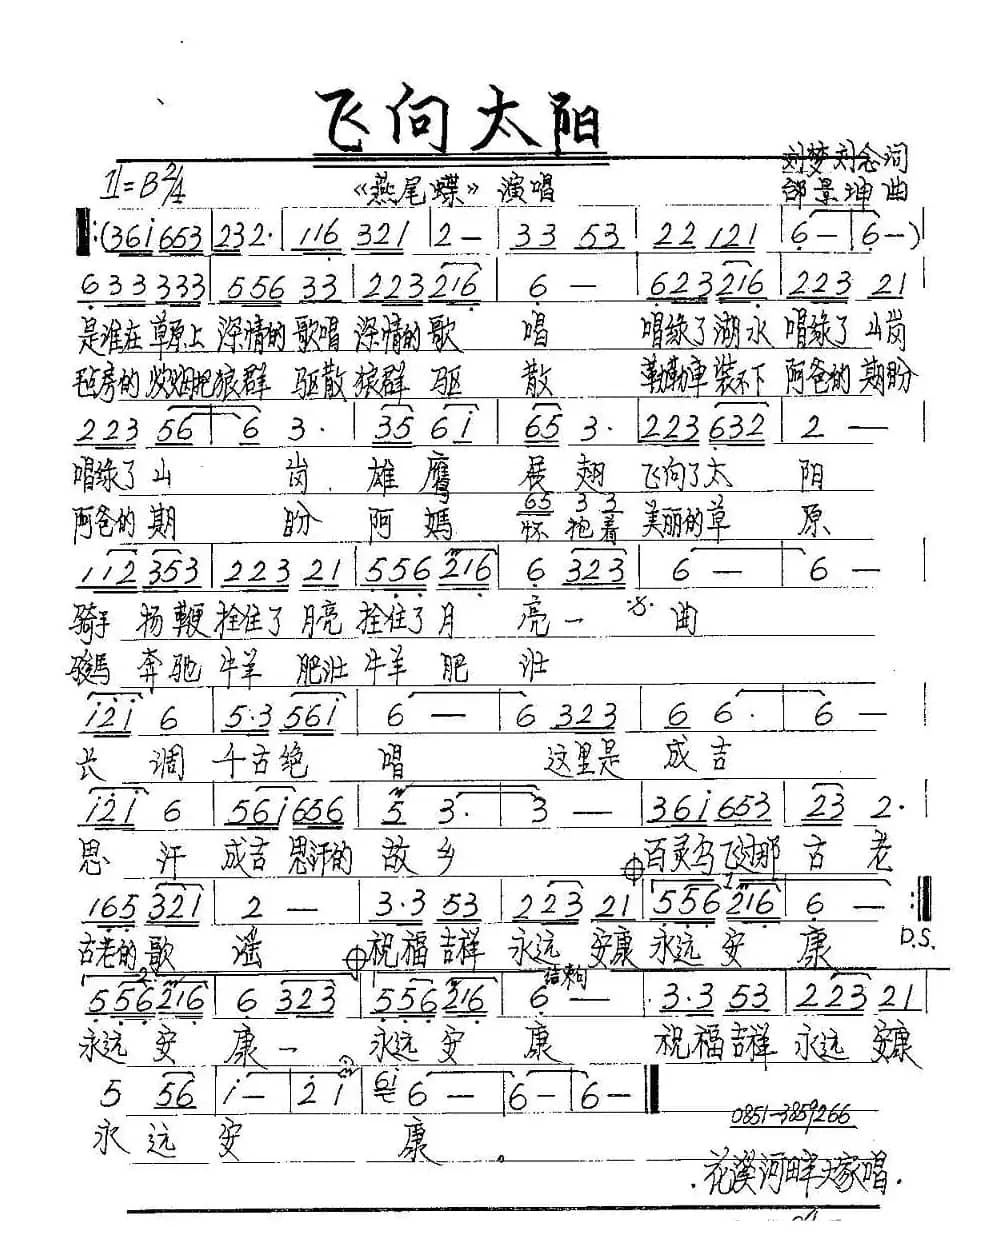 飞向太阳
刘梦 刘念 词
1=B 2/4 《燕尾蝶》演唱
邰景坤 曲
:(36i 653 | 232· | 116 321 | 2 — | 33 53 | 22 121 | 6 — | 6 — )
633 333 | 556 33 | 223 216 | 6 — | 623 216 | 223 21
是谁在草原上 深情的歌唱 深情的歌 唱 唱绿了湖水 唱绿了山岗
毡房的 把狼群 驱散 狼群 驱 散 勒勒車装不下 阿爸的期盼
223 56 | 6 3· | 35 6i | 65 3· | 223 632 | 2 —
唱绿了山 岗 雄鹰 展翅 飞向了太 阳
65 3 3
阿爸的期 盼 阿媽 怀抱着 美丽的草 原
112 353 | 223 21 | 556 216 | 6 323 | 6 — | 6 —
骑手 扬鞭 拴住了月亮 拴住了月 亮一 曲
駿馬 奔驰 牛羊 肥壮 牛羊 肥 壮
i2i 6 | 5·3 56i | 6 — | 6 323 | 6 6· | 6 —
长调 千古绝 唱 这里是 成吉
i2i 6 | 56i 656 | 5 3· | 3 — | 36i 653 | 23 2·
思汗 成吉思汗的 故乡 百灵鸟飞过那 古老
165 321 | 2 — | 3·3 53 | 223 21 | 1 556 216 | 6 — :
古老的歌 谣 祝福吉祥 永远 安康 永远安 康 D.S.
2. 556 216 | 6 323 | 556 216 | 结束句 6 — | 3·3 53 | 223 21
永远安 康一 永远安 康 祝福吉祥 永远 安康
5 56 | i — | 2 i | 6i 6 — | 6 — | 6 —
永远安 康
0851-3859266
花溪河畔大家唱